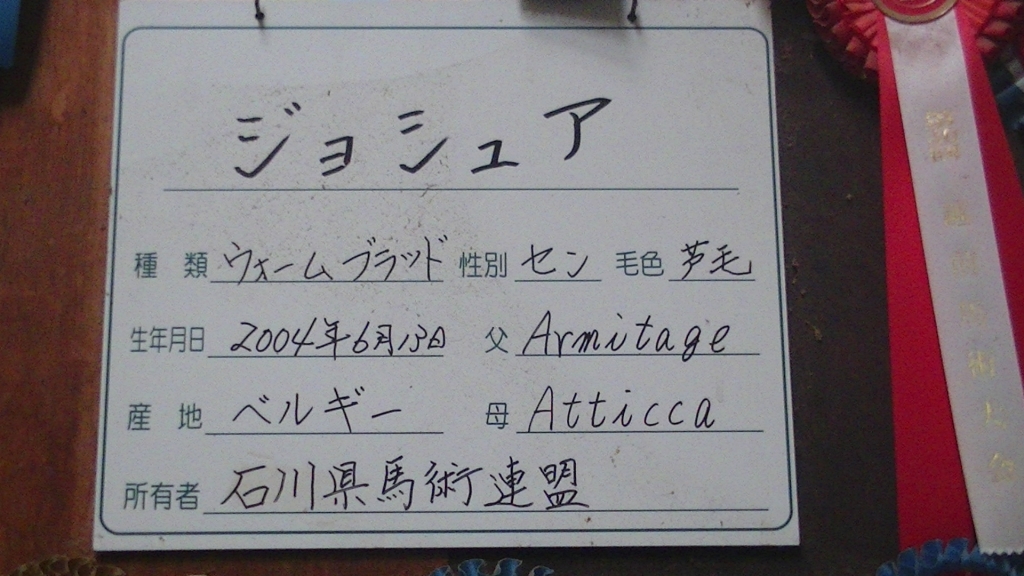 ジョシュア
種類 ウォームブラッド 性別 セン 毛色 芦毛
生年月日 2004年6月13日 父 Armitage
産地 ベルギー 母 Atticca
所有者 石川県馬術連盟